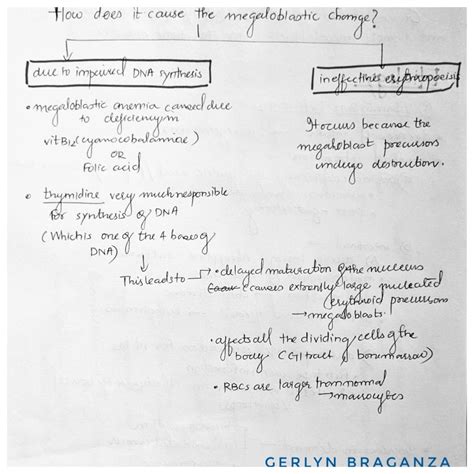 How does it cause the megaloblastic change?
due to impaired DNA synthesis
• megaloblastic anemia caused due
to deficiency in
vit B12 (cyanocobalamine)
OR
Folic acid
• thymidine very much responsible
for synthesis of DNA
(Which is one of the 4 bases of
DNA)
This leads to
• delayed maturation of the nucleus
& causes extremly large nucleated
(erythroid precursors
→ megaloblasts.
• affects all the dividing cells of the
body (GI tract & bone marrow)
• RBCs are larger than normal
→ macrocytes
ineffective erythropoeisis
It occurs because the
megaloblast precursors
undergo destruction.
GERLYN BRAGANZA